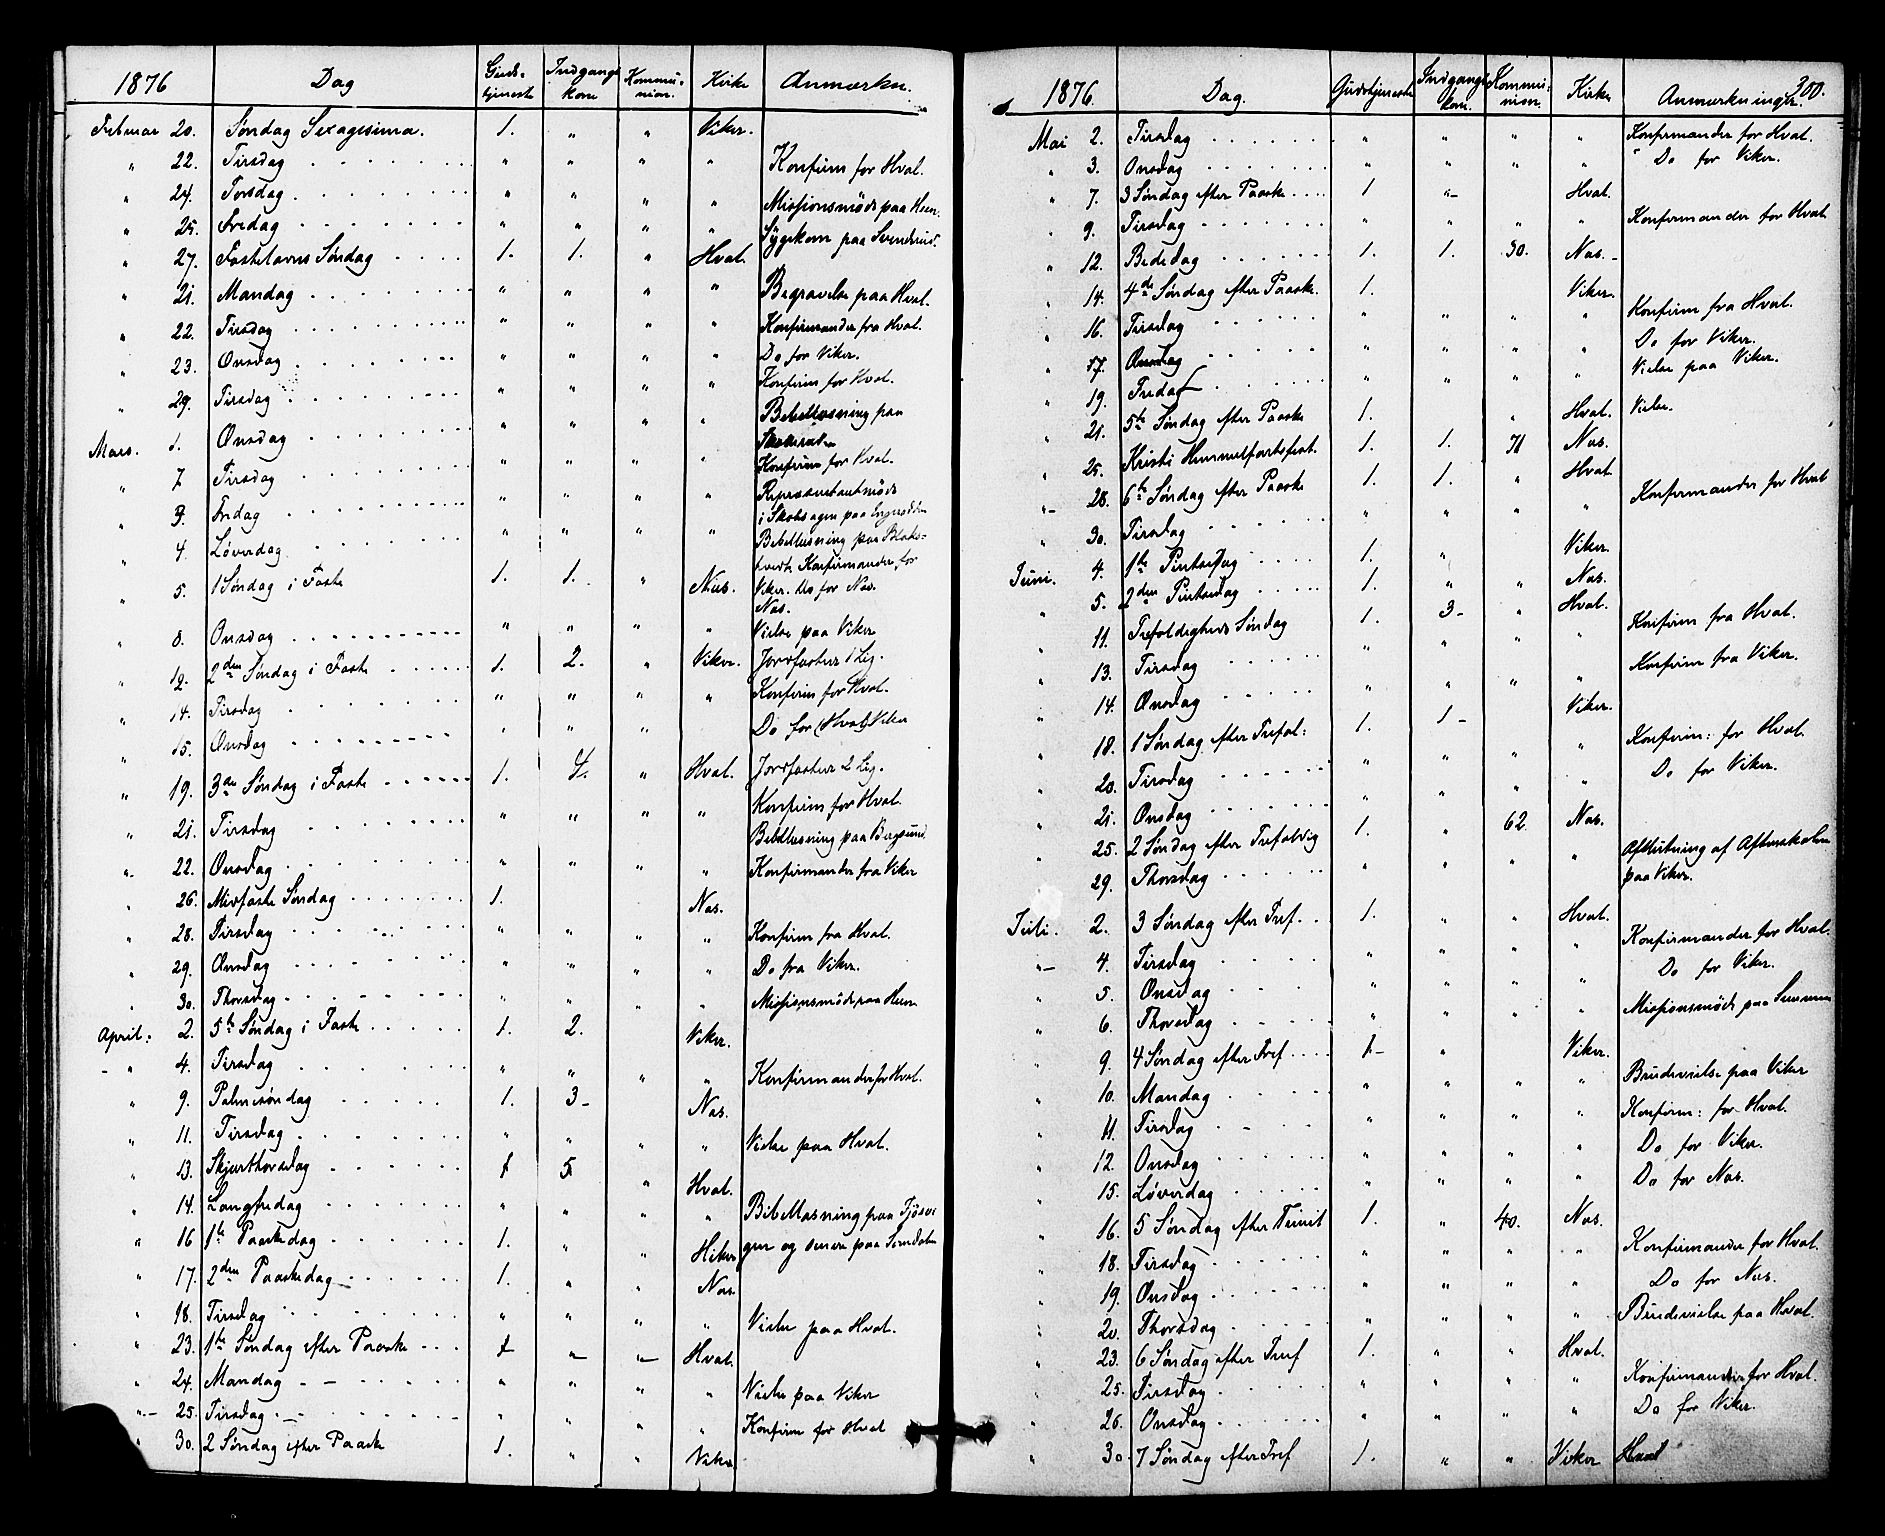 1876 Dag Guds-tjeneste Indgangs kone Kommu-nion. Kirke Anmærkn.
Februar 20. Søndag Sexagesima. 1. " " Viker.
" 22. Tirsdag " " " " Konfirm for Hval.
" 24. Torsdag " " " " Missionsmöde paa Heen.
" 25. Fredag " " " " Sygekom paa
" 27. Fastelavns Søndag 1. 1. " Hval.
" 21. Mandag " " " " Begravelse paa Hval.
" 22. Tirsdag " " " " Konfirmander fra Hval.
" 23. Onsdag " " " " Do for Viker.
" 29. Tirsdag " " " " Konfirm for Hval.
Mars. 1. Onsdag " " " " Bibellæsning paa
" 7. Tirsdag " " " " Konfirm for Hval.
" 3. Fredag " " " " Repræsentantmöde
i Skolesagen paa
" 4. Løverdag " " " " Bibellæsning paa
Konfirmander for
" 5. 1 Søndag i Faste 1. 1. " Næs. Viker. Do for Næs.
Næs.
" 8. Onsdag " " " " Vielse paa Viker
" 12. 2den Søndag i Faste 1. 2. " Viker. Jordfæstet 1 Lig.
" 14. Tirsdag " " " " Konfirm for Hval.
" 15. Onsdag " " " Do for (Hval) Viker
" 19. 3die Søndag i Faste 1. 4. " Hval. Jordfæstet 2 Lig.
" 21. Tirsdag " " " " Konfirm for Hval.
Bibellæsning paa Bergsund.
" 22. Onsdag " " " " Konfirmander fra Viker
" 26. Midfaste Søndag 1. Næs.
" 28. Tirsdag " " " " Konfirm fra Hval.
" 29. Onsdag " " " " Do fra Viker.
" 30. Thorsdag " " " " Missionsmöde paa Heen
April: 2. 5te Søndag i Faste 1. 2. Viker.
" 4. Tirsdag " " " " Konfirmander for Hval.
" 9. Palmesøndag 1. 3 Næs.
" 11. Tirsdag " " " " Vielse paa Hval.
" 13. Skjærthorsdag 1 5 " Hval.
" 14. Langfredag " " " " Bibellæsning paa
" 16 1te Paaskedag 1. " Hiker og senere paa
" 17. 2den Paaskedag 1. " " Næs
" 18. Tirsdag " " " " Vielse paa Hval.
" 23. 1te Søndag efter Paaske 1 " " Hval.
" 24. Mandag " " " " Vielse paa Viker
" 25. Tirsdag " " " " Konfirm for Hval
" 30. 2 Søndag efter Paaske 1. " " Viker
300.
1876. Dag. Gudstjeneste Indgangs kon. Kommu-nion. Kirke Anmærkninger.
Mai 2. Tirsdag " " " " Konfirmander for Hval.
" 3. Onsdag " " " " Do for Viker.
" 7. 3 Søndag efter Paaske 1 " Hval.
" 9. Tirsdag " " " " Konfirmander for Hval
" 12. Bededag 1. 1. 30. Næs.
" 14. 4de Søndag efter Paaske. 1. Viker.
" 16. Tirsdag " " " " Konfirm fra Hval.
" 17. Onsdag " " " " Do for Viker.
" 19. Fredag " " " " Vielse paa Viker.
" 21. 5te Søndag efter Paaske 1. " Hval. Vielse.
" 25. Kristi Himmelfartsfest. 1. 1. 71 Næs.
" 28. 6te Søndag efter Paaske 1. 1. " Hval
" 30. Tirsdag " " " " Konfirmander for Hval
Juni. 4. 1te Pintsedag 1. " Viker.
" 5. 2den Pintsedag 1. " " Næs.
" 11. Trefoldigheds Søndag 1. 3 " Hval.
" 13. Tirsdag " " " " Konfirm fra Hval.
" 14. Onsdag " " " " Konfirm fra Viker.
" 18. 1 Søndag efter Trefol: 1. 1 Viker.
" 20. Tirsdag " " " " Konfirm: for Hval.
" 21. Onsdag " " " " Do for Viker.
" 25. 2 Søndag efter Trefoldig 1. " 62. Næs.
" 29. Thorsdag " " " " Afslutning af Aftenskolen
paa Viker.
Juli. 2. 3 Søndag efter Tref. 1. " " Hval.
" 4. Tirsdag " " " " Konfirmander for Hval.
" 5. Onsdag " " " " Do for Viker.
" 6. Thorsdag " " " " Missionsmöde paa
" 9. 4 Søndag efter Tref. 1 " Viker.
" 10. Mandag " " " " Brudevielse paa Viker
" 11. Tirsdag " " " " Konfirm: for Hval.
" 12. Onsdag " " " " Do for Viker.
" 15. Løverdag " " " " Do for Næs.
" 16. 5 Søndag efter Trinit 1. " 40. Næs.
" 18. Tirsdag " " " " Konfirmander for Hval.
" 19. Onsdag " " " " Do for Næs.
" 20. Thorsdag " " " " Brudevielse paa Hval.
" 23. 6 Søndag efter Tref 1. " " Hval.
" 25. Tirsdag " " " " Konfirmander for Hval.
" 26. Onsdag " " " " Do for Viker.
" 30. 7 Søndag efter Tref 1. " " Viker Hval